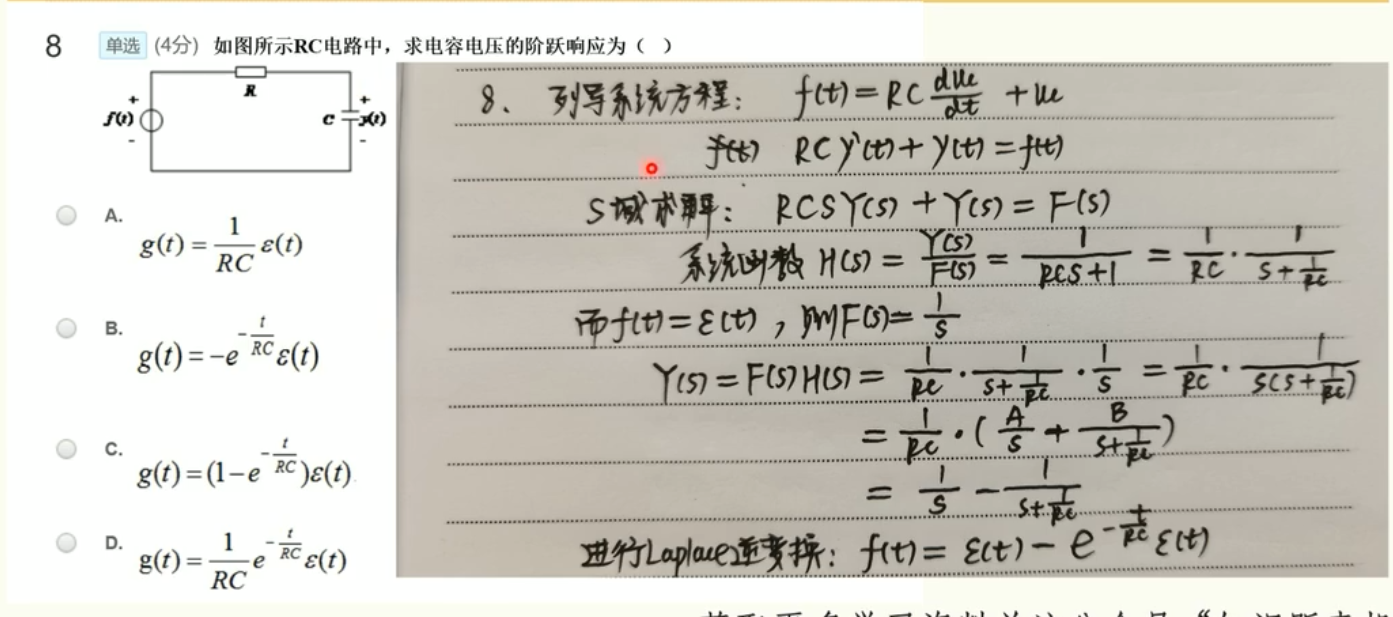 8 单选 (4分) 如图所示RC电路中，求电容电压的阶跃响应为（ ）
R
+ +
f(t) C y(t)
- -
A. g(t) = 1/RC ε(t)
B. g(t) = -e^(-t/RC) ε(t)
C. g(t) = (1-e^(-t/RC))ε(t)
D. g(t) = 1/RC e^(-t/RC) ε(t)
8、列写系统方程： f(t) = RC duc/dt + uc
f(t) RCy'(t) + y(t) = f(t)
S域求解： RCSY(s) + Y(s) = F(s)
系统函数 H(s) = Y(s)/F(s) = 1/(RCS+1) = 1/RC · 1/(S+1/RC)
而f(t) = ε(t)，则F(s) = 1/S
Y(s) = F(s)H(s) = 1/RC · 1/(S+1/RC) · 1/S = 1/RC · 1/(S(S+1/RC))
= 1/RC · (A/S + B/(S+1/RC))
= 1/S - 1/(S+1/RC)
进行Laplace逆变换： f(t) = ε(t) - e^(-t/RC) ε(t)